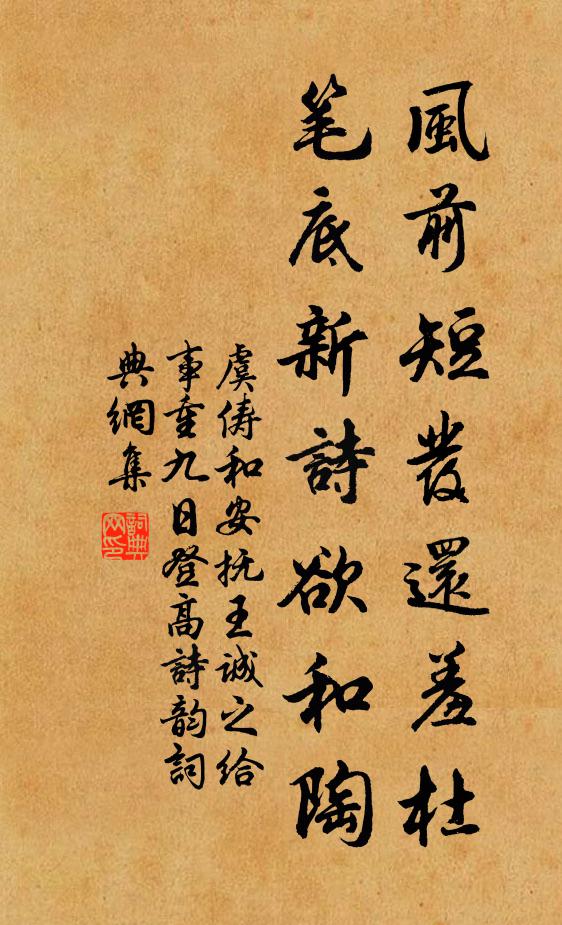 風前短發還羞杜
笔底新詩欲和陶
虞儔和安抚王诚之给
事重九日登高詩韵詞
典網集
詞典网印